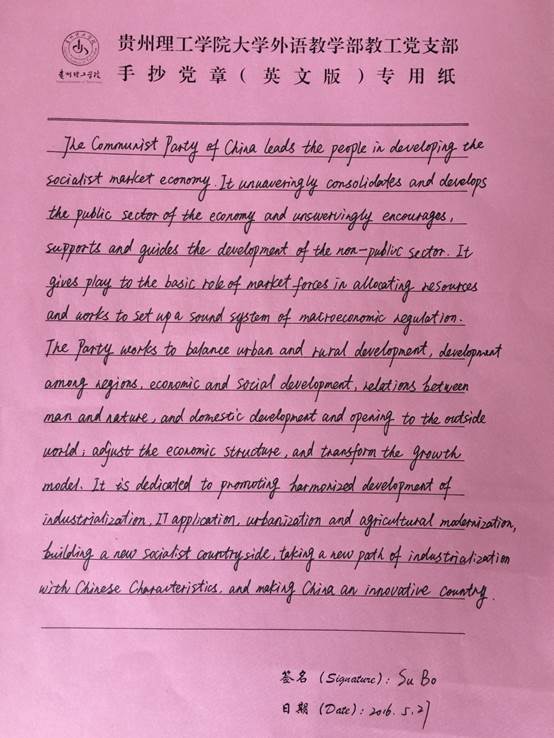 贵州理工学院
贵州理工学院大学外语教学部教工党支部
手抄党章(英文版)专用纸
The Communist Party of China leads the people in developing the
socialist market economy. It unwaveringly consolidates and develops
the public sector of the economy and unswervingly encourages,
supports and guides the development of the non-public sector. It
gives play to the basic role of market forces in allocating resources
and works to set up a sound system of macroeconomic regulation.
The Party works to balance urban and rural development, development
among regions, economic and social development, relations between
man and nature, and domestic development and opening to the outside
world; adjust the economic structure, and transform the growth
model. It is dedicated to promoting harmonized development of
industrialization, IT application, urbanization and agricultural modernization,
building a new socialist countryside, taking a new path of industrialization
with Chinese Characteristics, and making China an innovative country.
签名 (Signature): Su Bo
日期 (Date): 2016.5.27